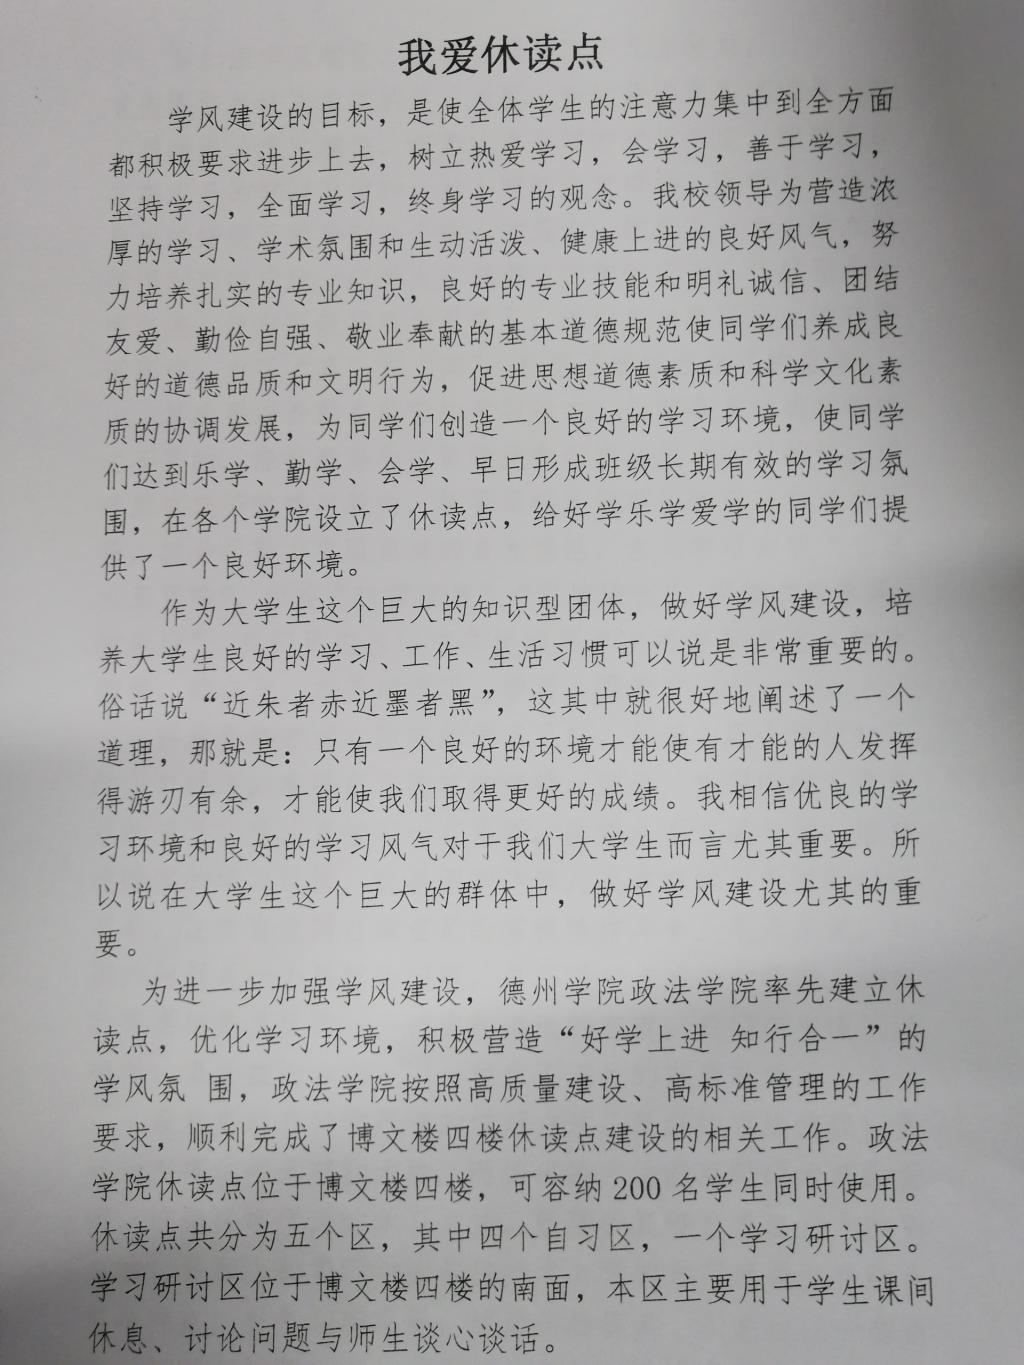 我爱休读点
学风建设的目标，是使全体学生的注意力集中到全方面
都积极要求进步上去，树立热爱学习，会学习，善于学习，
坚持学习，全面学习，终身学习的观念。我校领导为营造浓
厚的学习、学术氛围和生动活泼、健康上进的良好风气，努
力培养扎实的专业知识，良好的专业技能和明礼诚信、团结
友爱、勤俭自强、敬业奉献的基本道德规范使同学们养成良
好的道德品质和文明行为，促进思想道德素质和科学文化素
质的协调发展，为同学们创造一个良好的学习环境，使同学
们达到乐学、勤学、会学、早日形成班级长期有效的学习氛
围，在各个学院设立了休读点，给好学乐学爱学的同学们提
供了一个良好环境。
作为大学生这个巨大的知识型团体，做好学风建设，培
养大学生良好的学习、工作、生活习惯可以说是非常重要的。
俗话说“近朱者赤近墨者黑”，这其中就很好地阐述了一个
道理，那就是：只有一个良好的环境才能使有才能的人发挥
得游刃有余，才能使我们取得更好的成绩。我相信优良的学
习环境和良好的学习风气对于我们大学生而言尤其重要。所
以说在大学生这个巨大的群体中，做好学风建设尤其的重
要。
为进一步加强学风建设，德州学院政法学院率先建立休
读点，优化学习环境，积极营造“好学上进 知行合一”的
学风氛 围，政法学院按照高质量建设、高标准管理的工作
要求，顺利完成了博文楼四楼休读点建设的相关工作。政法
学院休读点位于博文楼四楼，可容纳 200 名学生同时使用。
休读点共分为五个区，其中四个自习区，一个学习研讨区。
学习研讨区位于博文楼四楼的南面，本区主要用于学生课间
休息、讨论问题与师生谈心谈话。